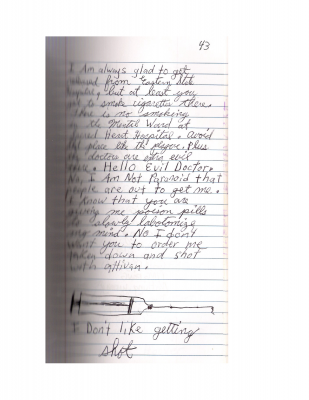 43
I Am always glad to get
released from Eastern State
Hospital, but at least you
get to smoke cigarettes there.
There is no smoking
in the Mental Ward at
Heart Hospital. Avoid
that place like the plague. Plus
the doctors are extra evil
there. Hello Evil Doctor.
No, I Am Not Paranoid that
people are out to get me.
I know that you are
giving me poison pills
to slowly labotomize
my mind. No I don't
want you to order me
taken down and shot
with attivan.
I Don't like getting
shot